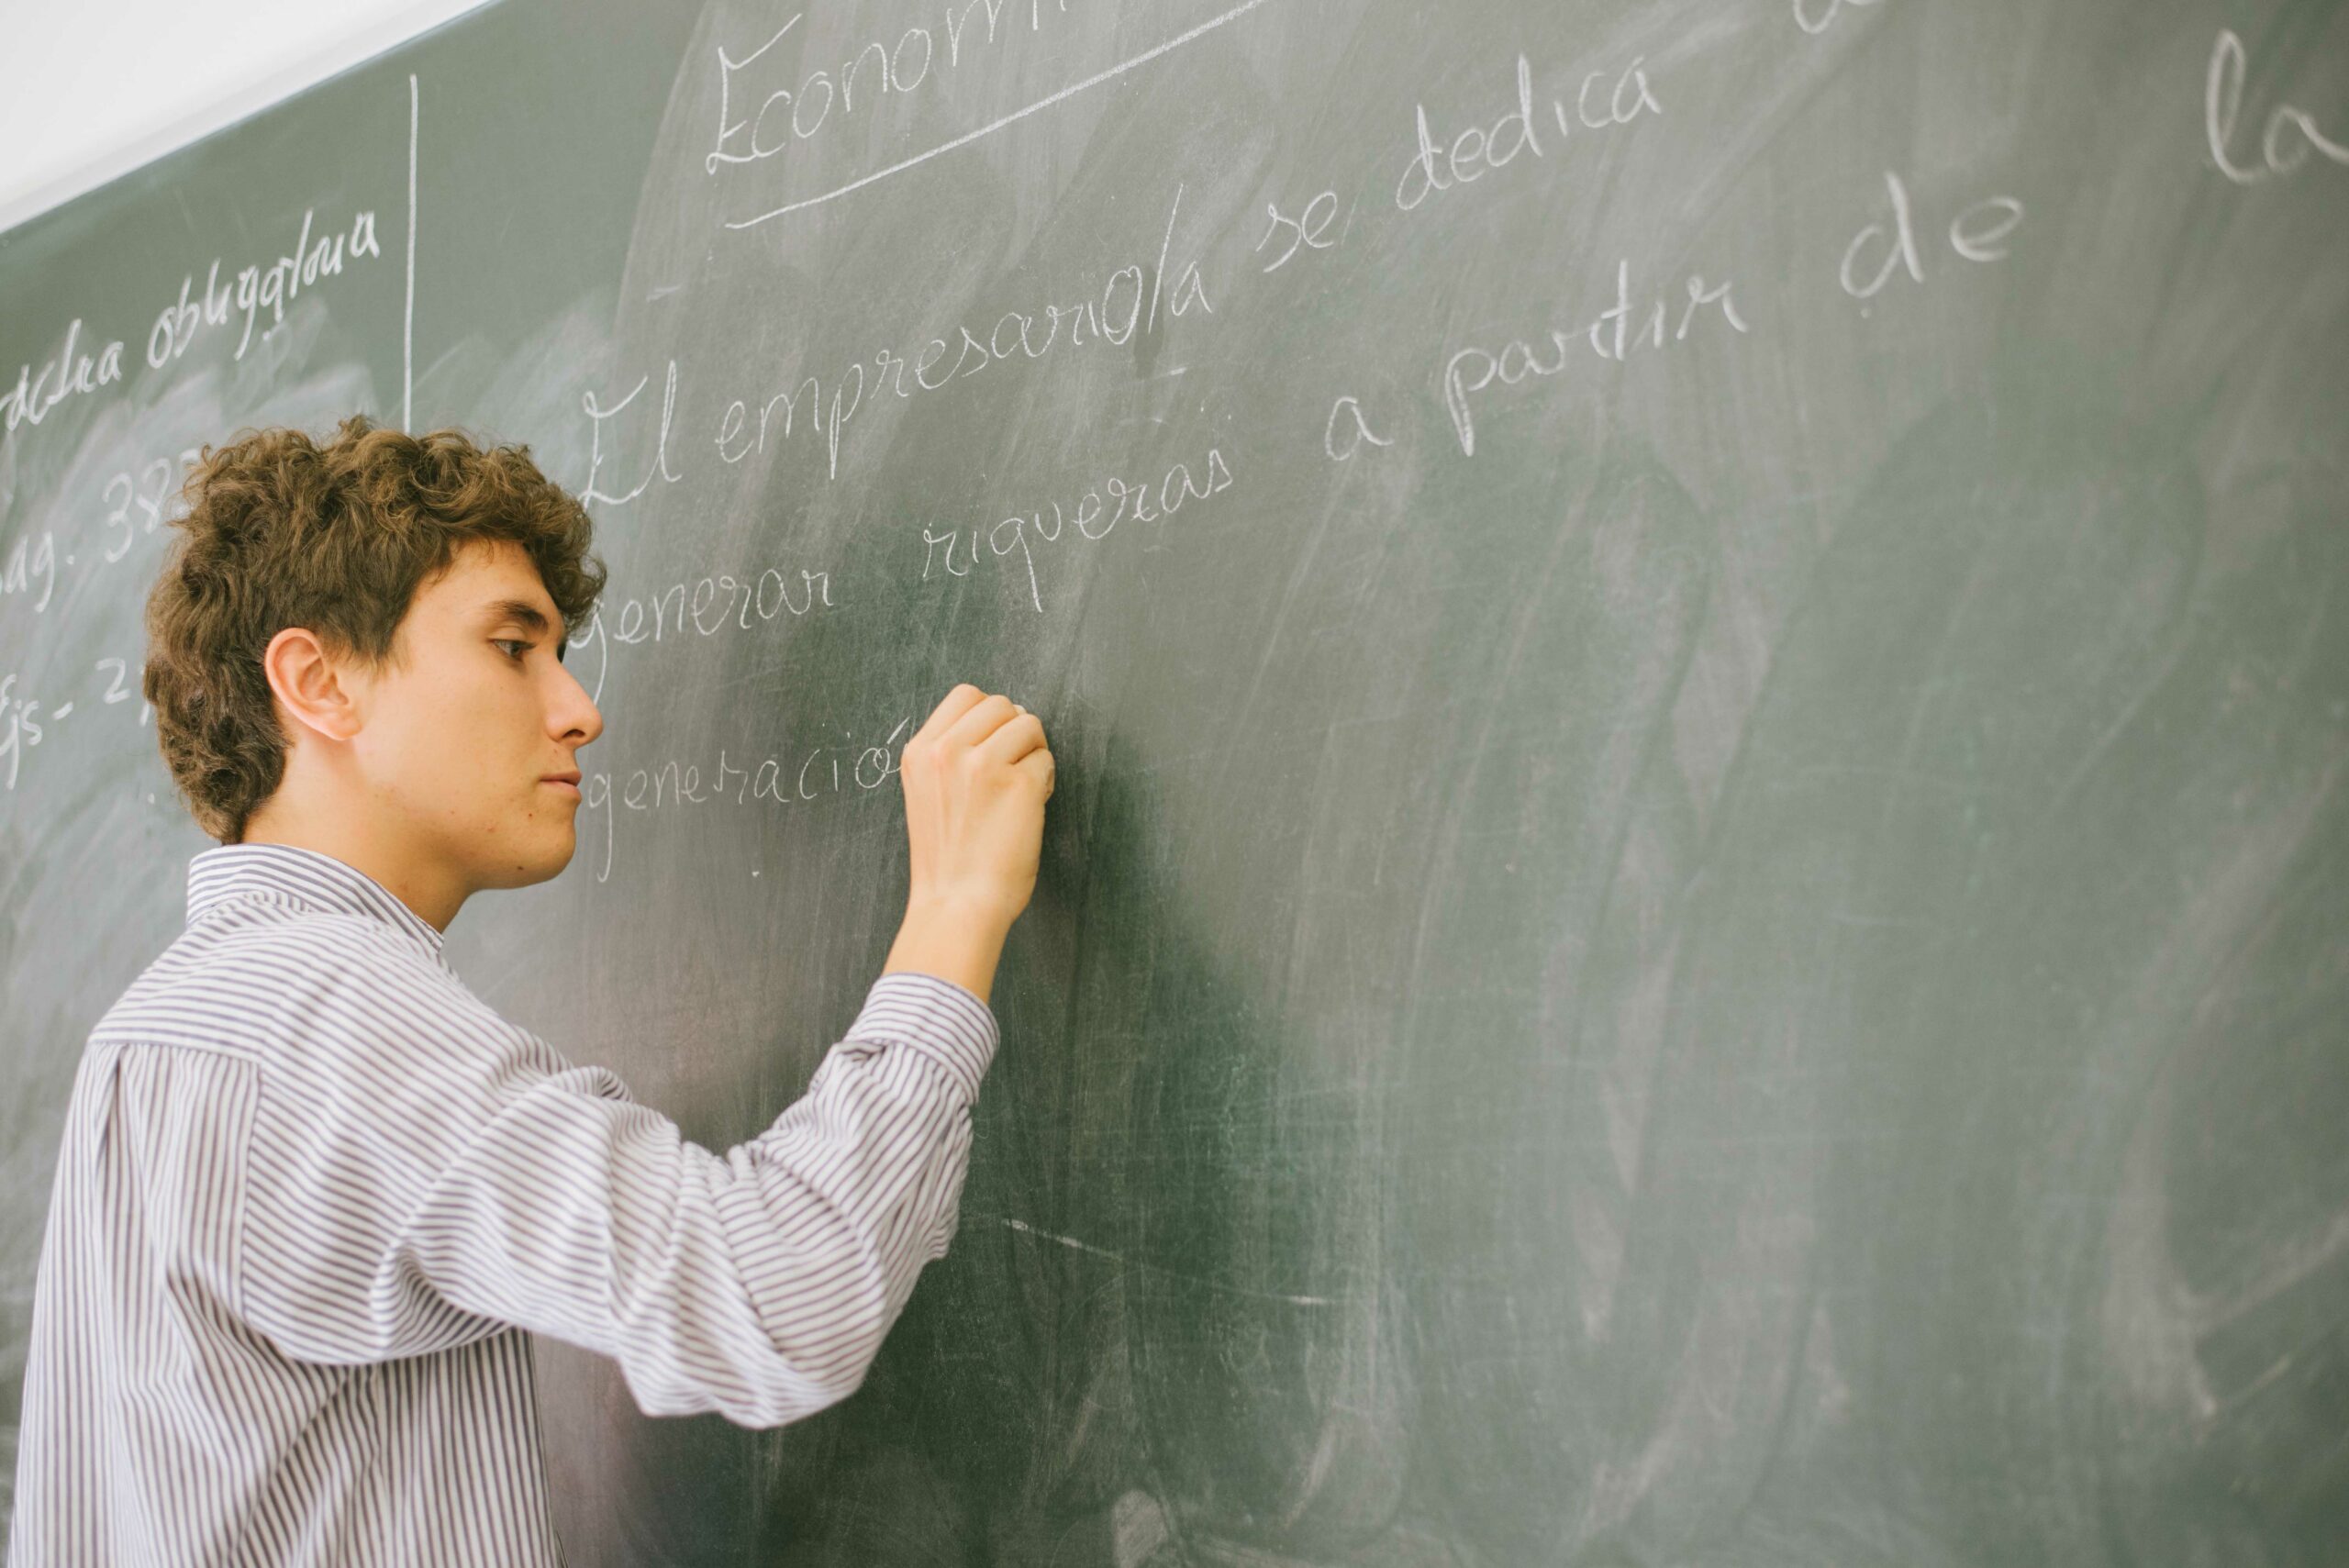 obligatoria
pag. 38
Ejs- 2
Econom
El empresario/a se dedica a
generar riquezas a partir de la
generació